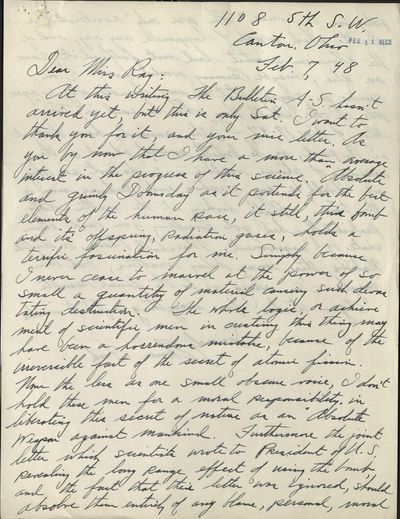 1108 5th S.W.
Canton, Ohio
FEB 11 RECD
Feb. 7, 48
Dear Miss Ray:
At this writing The Bulletin A-S. hasn't
arrived yet, but this is only Sat. I want to
thank you for it, and your nice letter. As
you by now that I have a more than average
interest in the progress of this science. "Absolute
and grimly Doomsday as it portends for the best
elements of the human race, it still, this bomb
and its offspring, Radiation gases, holds a
terrific fascination for me. Simply because
I never cease to marvel at the power of so
small a quantity of material causing such devas
tating destruction. The whole logic, or achieve
ment of scientific men in creating this thing may
have been a horrendous mistake, because of the
irreversible fact of the secret of atomic fission.
None the less as one small obscure voice, I don't
hold these men for a moral responsibility, in
liberating this secret of nature as an "Absolute
Weapon against mankind. Furthermore the joint
letter which scientists wrote to President of U.S.
revealing the long range effect of using the bomb,
and the fact that their letter was ignored, should
absolve them entirely of any blame, personal, moral